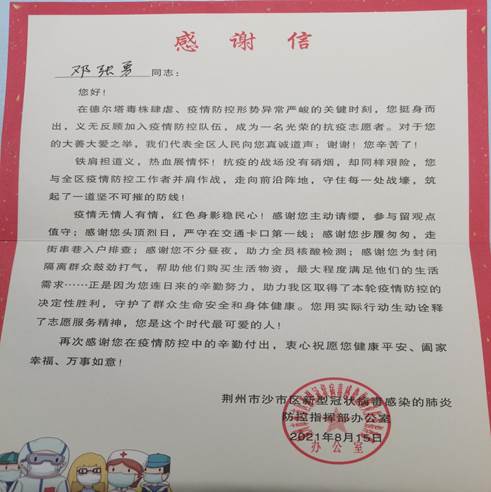 感谢信
邓张勇 同志：
您好！
在德尔塔毒株肆虐、疫情防控形势异常严峻的关健时刻，您挺身而
出，义无反顾加入疫情防控队伍，成为一名光荣的抗疫志愿者。对于您
的大善大爱之举，我们代表全区人民向您真诚道声：谢谢！您辛苦了！
铁肩担道义，热血展情怀！抗疫的战场没有硝烟，却同样艰险，您
与全区疫情防控工作者并肩作战，走向前沿阵地，守住每一处战壕，筑
起了一道坚不可摧的防线！
疫情无情人有情，红色身影稳民心！感谢您主动请缨，参与留观点
值守；感谢您头顶烈日，严守在交通卡口第一线；感谢您步履匆匆，走
街串巷入户排查；感谢您不分昼夜，助力全员核酸检测；感谢您为封闭
隔离群众鼓劲打气，帮助他们购买生活物资，最大程度满足他们的生活
需求……正是因为您连日来的辛勤努力，助力我区取得了本轮疫情防控的
决定性胜利，守护了群众生命安全和身体健康。您用实际行动生动诠释
了志愿服务精神，您是这个时代最可爱的人！
再次感谢您在疫情防控中的辛勤付出，衷心祝愿您健康平安、阖家
幸福、万事如意！
荆州市沙市区新型冠状病毒感染的肺炎
防控指挥部办公室
2021年8月15日
办公室